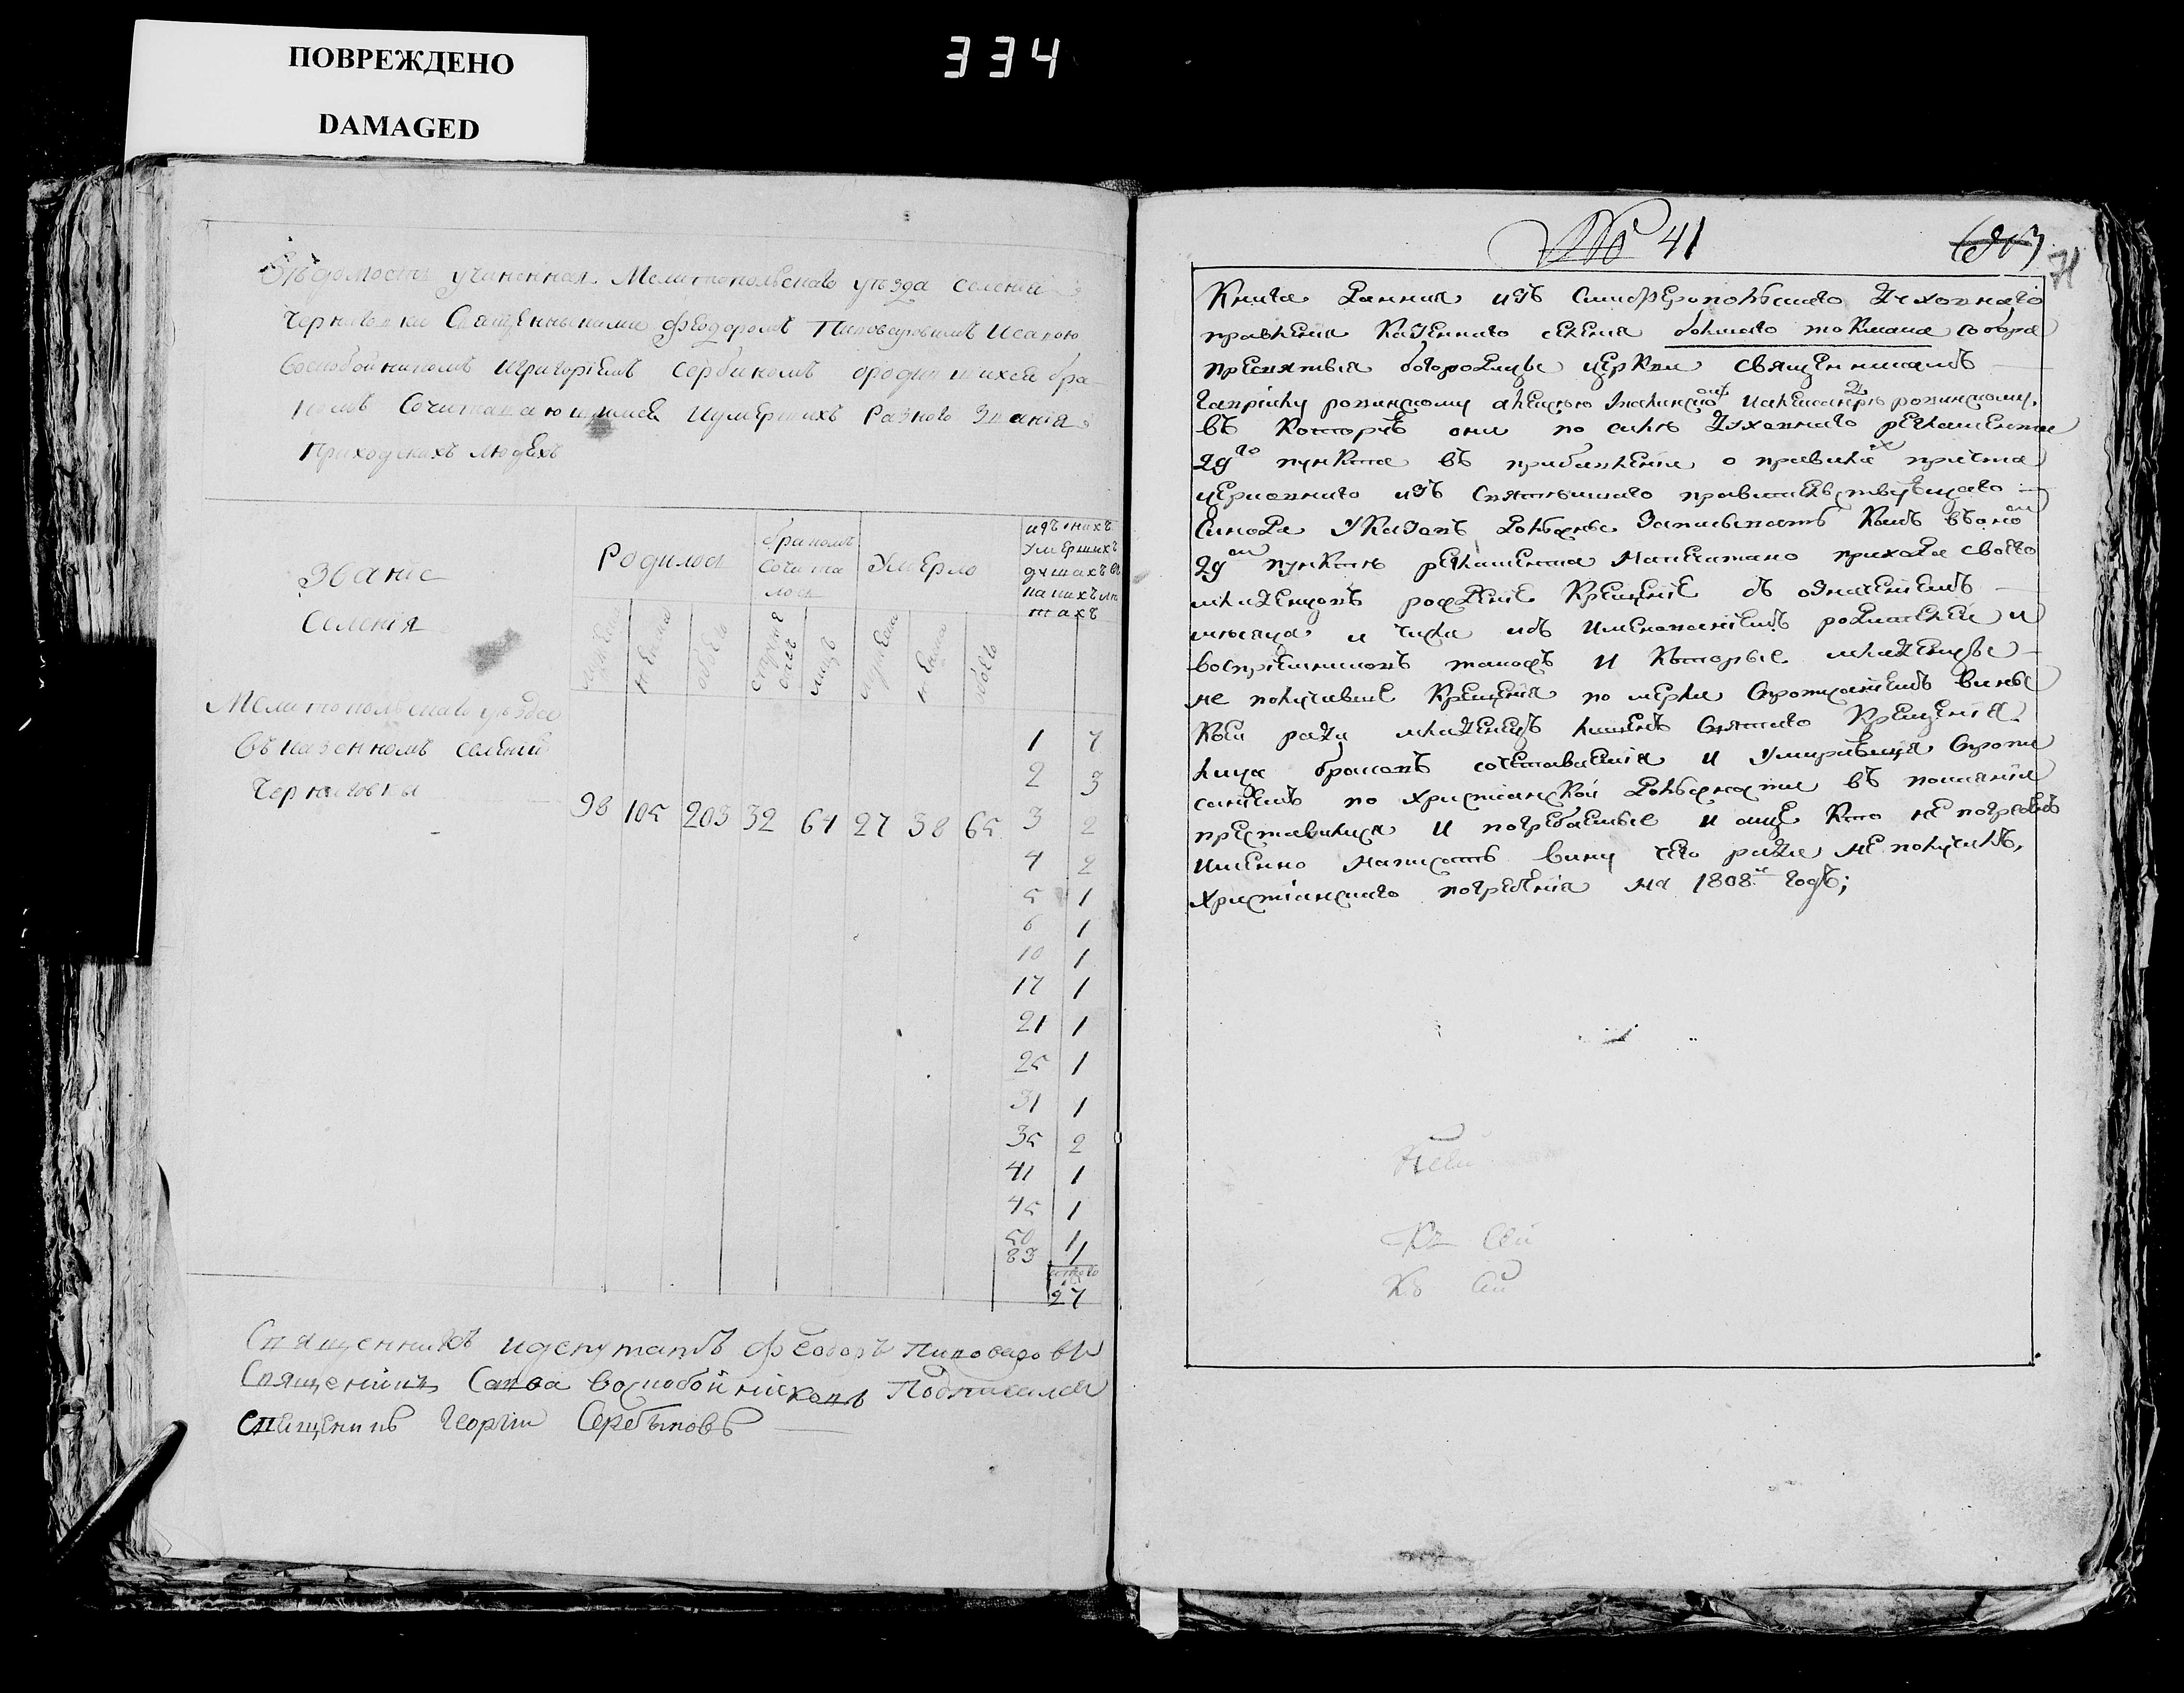 ПОВРЕЖДЕНО
DAMAGED
334
Вѣдомость учиненная Мелитопольскаго уѣзда селенія
Черниговки Священниками Феодоромъ Пивоваровымъ Исавою
Воскобойникомъ Игригоріемъ Сербиномъ ородившихся бра
комъ Сочитавающихся Иумершихъ Разного Званія
Приходскихъ людехъ
Званіе
Селенія
Родилося
бракомъ
Сочита
лося
Умерло
изъ онихъ
Умершихъ
душахъ въ
какихъ лѣ
тахъ
мужеска
женска
обоего
супруже
ствъ
лицъ
мужеска
женска
обоего
Мелитопольскаго уѣзда
въ казенномъ селеніи
Черниговки
98 105 203 32 64 27 38 65
1 7
2 3
3 2
4 2
5 1
6 1
10 1
17 1
21 1
25 1
31 1
35 2
41 1
45 1
50 1
83 1
итого
27
Священникъ идепутатъ Феодоръ Пивоваровъ
Священникъ Савва Воскобойниковъ Подписался
Священикъ Георгіи Сербиновъ
№ 41
71
Книга данная изъ Симферопольскаго Духовнаго
правленія Казеннаго селенія большаго токмака собора
пресвятыя богородицы церкви священникамъ
Гавріилу рожинскому алексѣю Иалександру рожинскому,
въ Которую они по силѣ Духовнаго регламента
29го пункта въ прибавленіи о правилахъ причта
церковнаго изъ Святѣйшаго правительствующаго
Синода Указовъ Должны Записывать Какъ въ оном
29ом пунктѣ регламента Напечатано прихода своего
младенцовъ рожденіе Крещеніе съ означеніемъ
мѣсяца и числа исъ Именованіемъ родителей и
воспріемниковъ такожъ И Которые младенцы
не получивше Крещенія померли Спрописаніемъ вины
Коей ради младенецъ лишенъ Святаго Крещенія
лица бракомъ сочетавшіяся И Умирающія Спропи
саніемъ по христіанской Должности въ покаяніи
преставшихся И погребаемые И аще Кто не погребенъ
Именно написать вину чего ради не получилъ,
христіанскаго погребенія на 1808й годъ;
Къ Сей
Къ Сей